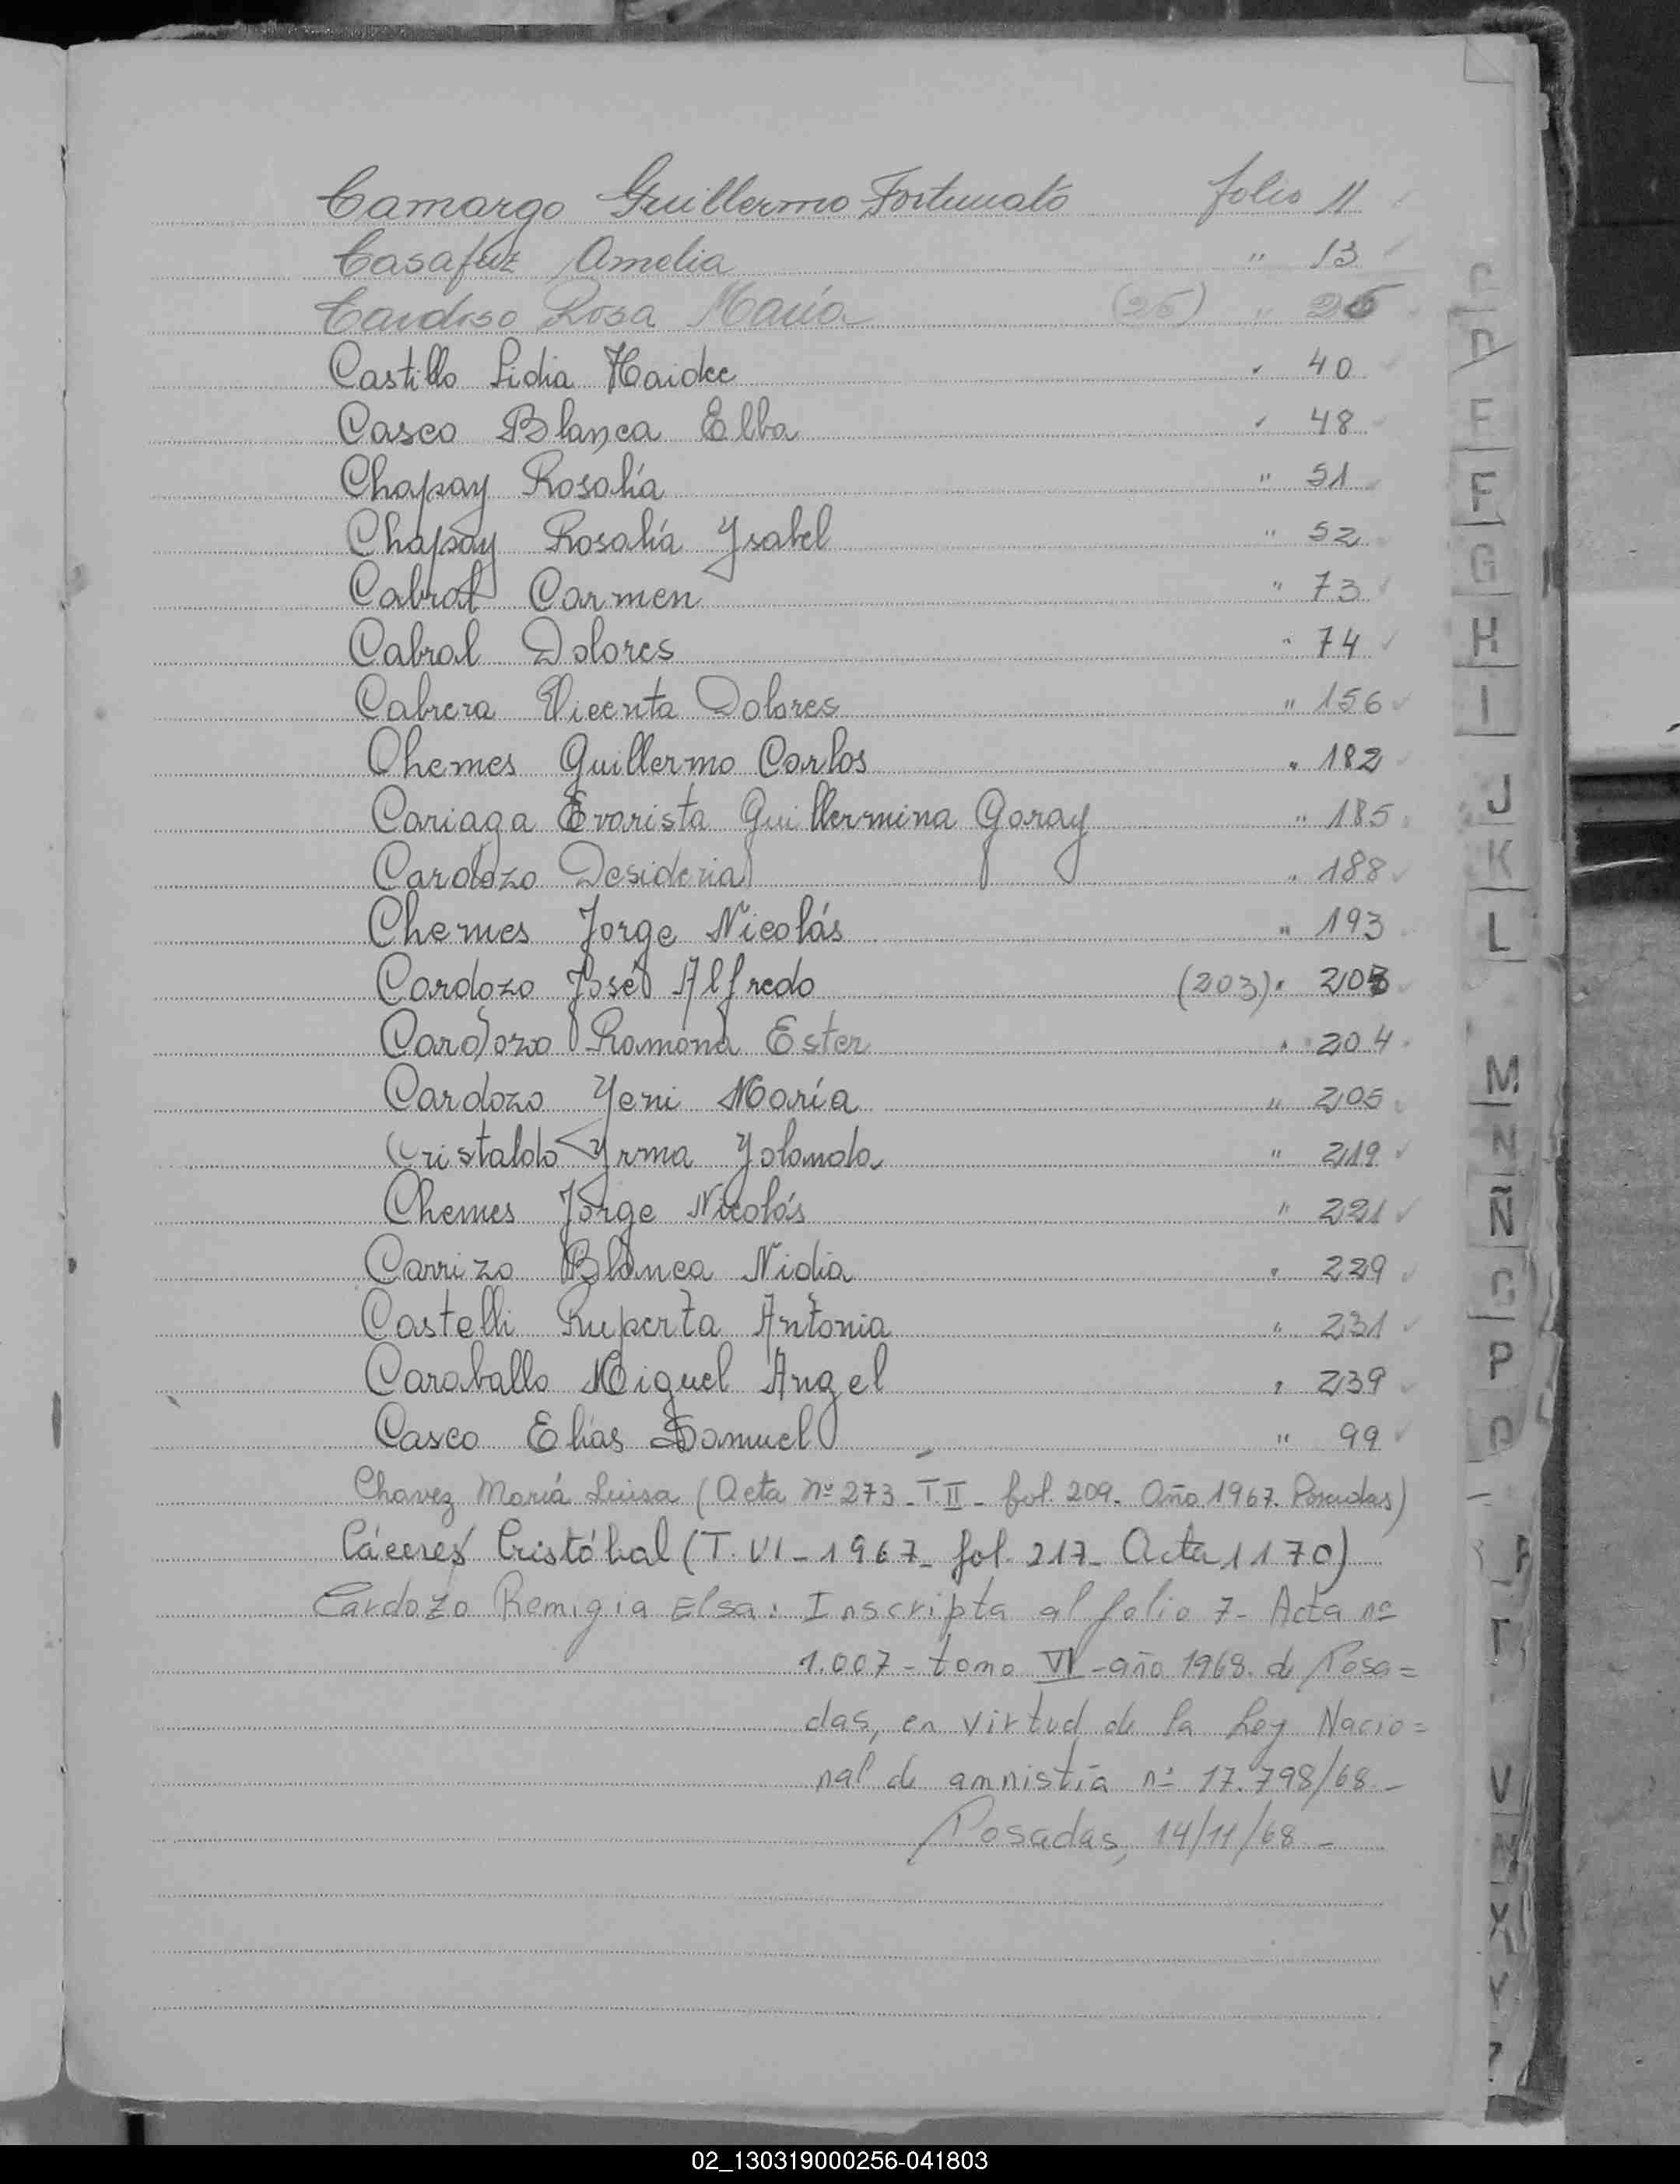 Camargo Guillermo Fortunato folio 11
Casafuz Amelia " 13
Cardoso Rosa María (26) " 26
Castillo Lidia Haidee " 40
Casco Blanca Elba " 48
Chapay Rosalía " 51
Chapay Rosalía Ysabel " 52
Cabral Carmen " 73
Cabral Dolores " 74
Cabrera Vicenta Dolores " 156
Chemes Guillermo Carlos " 182
Cariaga Evarista Guillermina Garay " 185
Cardozo Desideria " 188
Chemes Jorge Nicolás " 193
Cardozo José Alfredo (203) " 203
Cardozo Ramona Ester " 204
Cardozo Yeni María " 205
Cristaldo Yrma Yolanda " 219
Chemes Jorge Nicolás " 221
Carrizo Blanca Nidia " 229
Castelli Ruperta Antonia " 231
Caraballo Miguel Angel " 239
Casco Elías Samuel " 99
Chavez María Luisa (Acta nº 273 - T. II - fol. 209. Año 1967. Posadas)
Cáceres Cristóbal (T. VI - 1967 - fol. 217 - Acta 1170)
Cardozo Remigia Elsa: Inscripta al folio 7 - Acta nº
1.007 - tomo VI - año 1968. de Posa=
das, en virtud de la Ley Nacio=
nal de amnistía nº 17.798/68 -
Posadas, 14/11/68 -
D
E
F
G
H
I
J
K
L
M
N
Ñ
P
Q
R
T
V
X
Y
Z
02_130319000256-041803